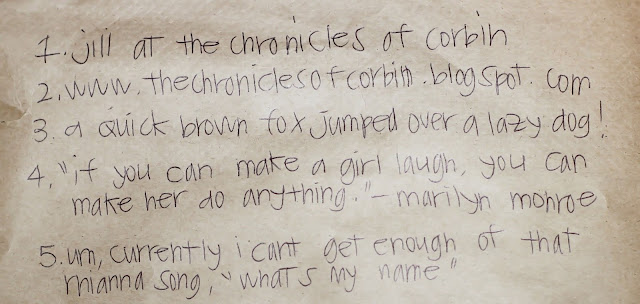 1. jill at the chronicles of corbin
2. www.thechroniclesofcorbin.blogspot.com
3. a quick brown fox jumped over a lazy dog!
4. "if you can make a girl laugh, you can
make her do anything." - marilyn monroe
5. um, currently i cant get enough of that
rhianna song, "whats my name"